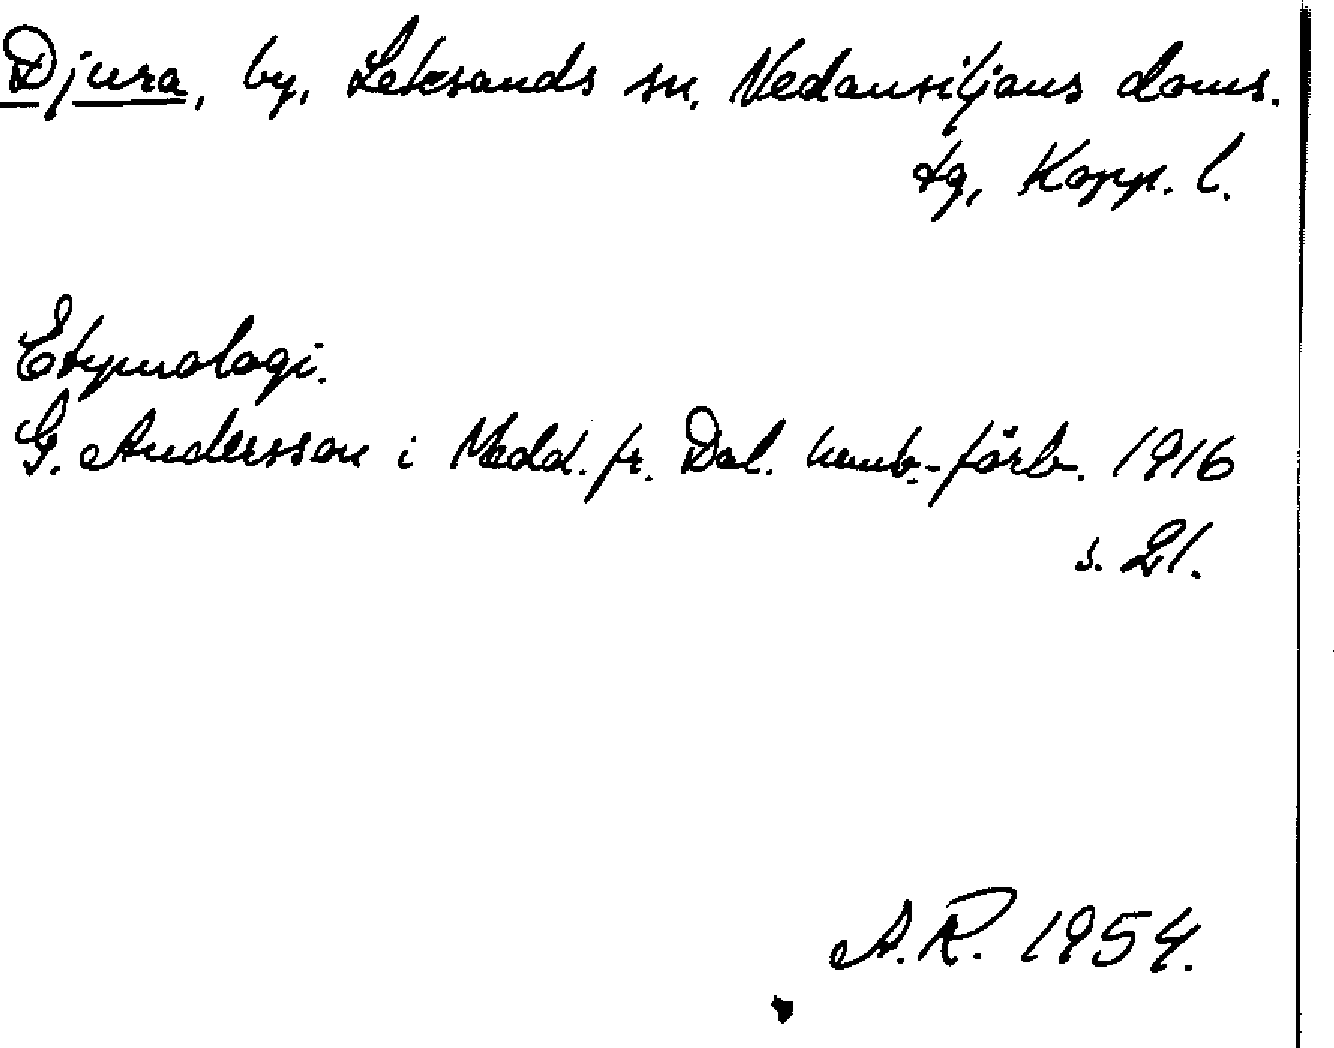 Djura, by, Leksands sn, Nedansiljans doms.
tg, Kopp. l.
Etymologi.
G. Andersson i Medd. fr. Dal. hemb.-förb. 1916
s. 21.
A.R. 1954.